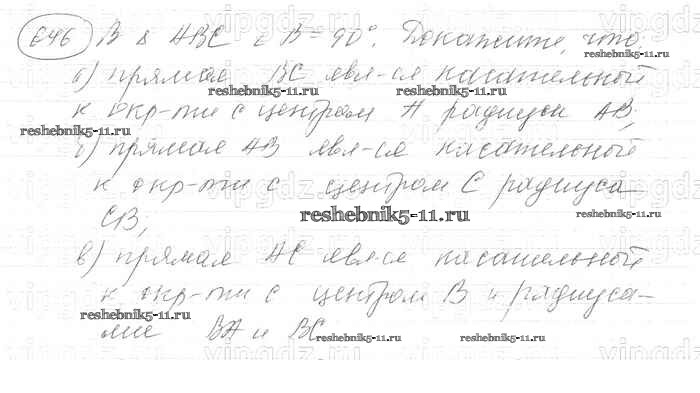 646 В Δ ABC ∠B = 90°. Докажите, что
а) прямая BC явл-ся касательной
к окр-ти с центром A радиуса AB,
б) прямая AB явл-ся касательной
к окр-ти с центром C радиуса
CB,
в) прямая AC явл-ся касательной
к окр-ти с центром B и радиуса-
ми BA и BC
reshebnik5-11.ru
reshebnik5-11.ru
reshebnik5-11.ru
reshebnik5-11.ru
reshebnik5-11.ru
reshebnik5-11.ru
reshebnik5-11.ru
reshebnik5-11.ru
reshebnik5-11.ru
vipgdz.ru